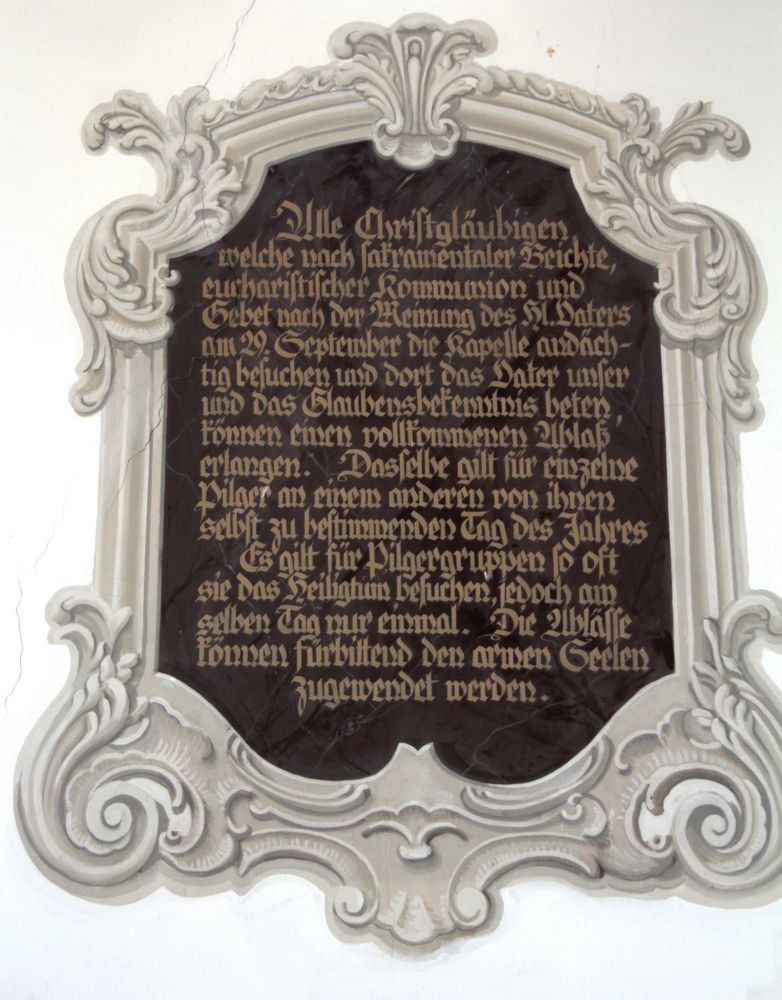 Alle Christgläubigen
welche nach sakramentaler Beichte,
eucharistischer Kommunion und
Gebet nach der Meinung des hl. Vaters
am 29. September die Kapelle andäch-
tig besuchen und dort das Vater unser
und das Glaubensbekenntnis beten,
können einen vollkommenen Ablaß
erlangen. Dasselbe gilt für einzelne
Pilger an einem anderen von ihnen
selbst zu bestimmenden Tag des Jahres
Es gilt für Pilgergruppen so oft
sie das Heiligtum besuchen, jedoch am
selben Tag nur einmal. Die Ablässe
können fürbittend den armen Seelen
zugewendet werden.